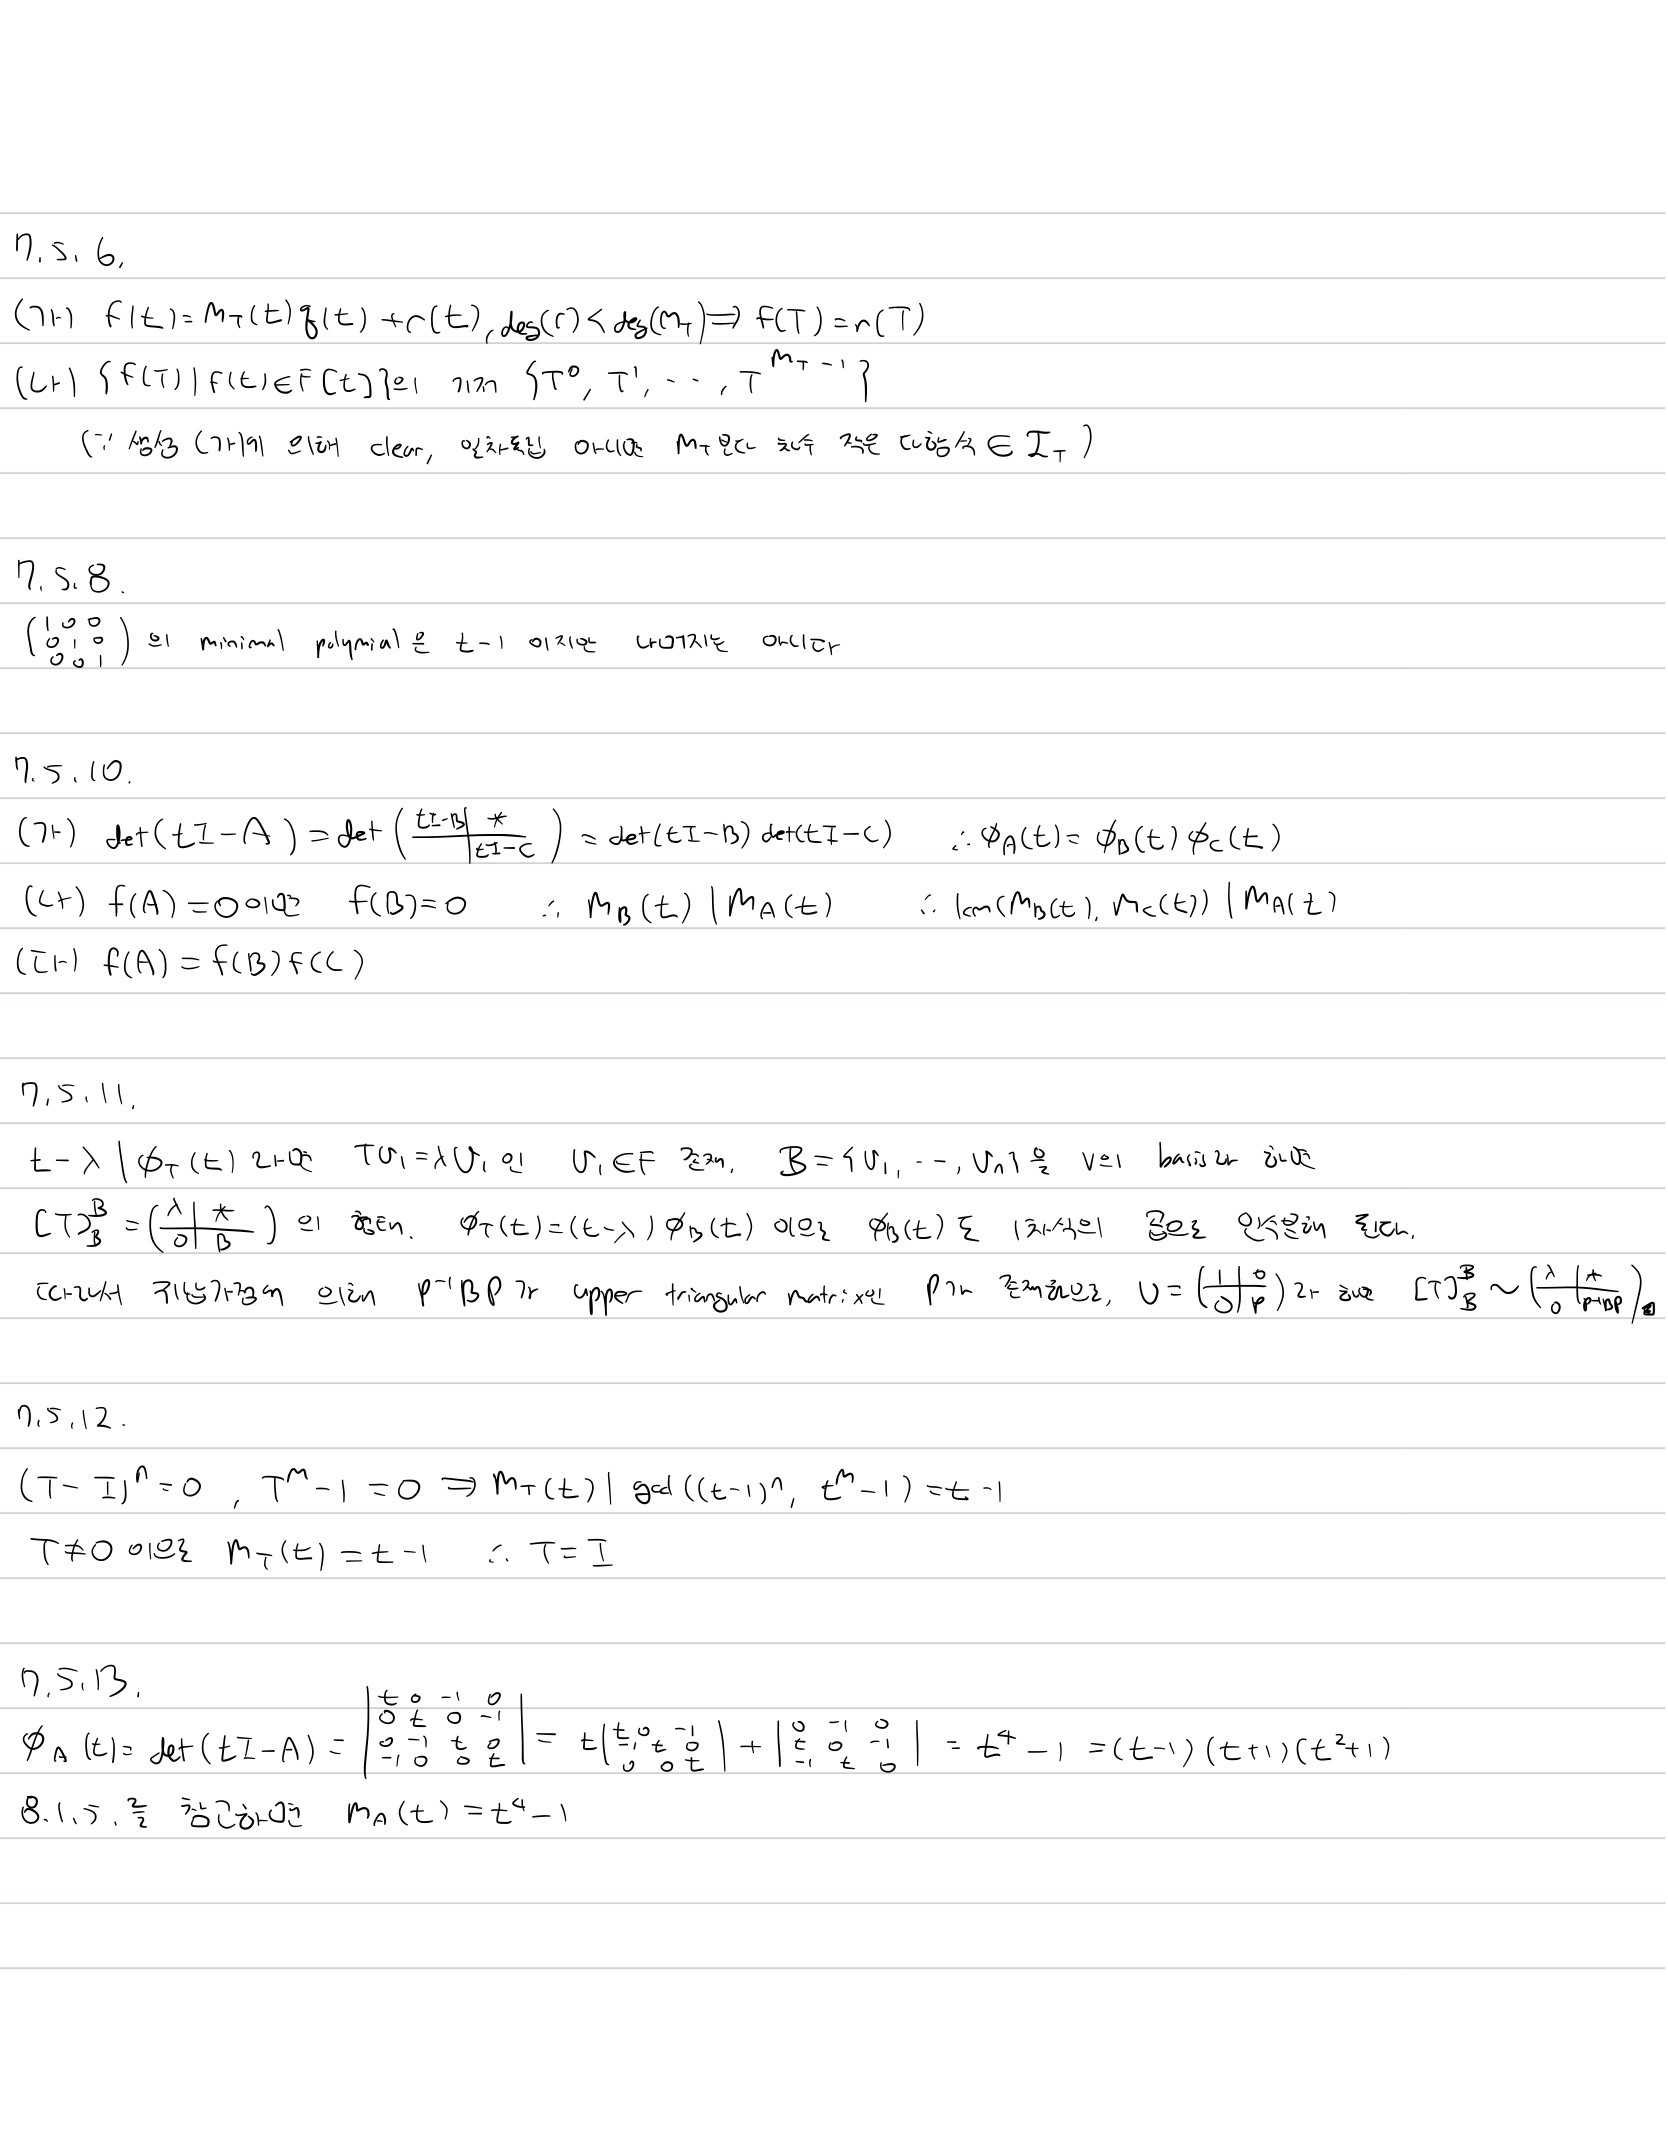 7.5.6.
(가) f(t)=m_T(t)q(t)+r(t), deg(r)<deg(m_T) ⇒ f(T)=r(T)
(나) {f(T) | f(t)∈F[t]}의 기저 {T⁰, T¹, ..., T^{m_T-1}}
(∵ 생성 (가)에 의해 clear, 일차독립 아니면 m_T보다 차수 작은 다항식 ∈ I_T)
7.5.8.
(1 0 0 / 0 1 0 / 0 0 1)의 minimal polymial은 t-1 이지만 나머지는 아니다
7.5.10.
(가) det(tI-A)=det(tI-B | * / | tI-C)=det(tI-B)det(tI-C) ∴ φ_A(t)=φ_B(t)φ_C(t)
(나) f(A)=0이면 f(B)=0 ∴ m_B(t) | m_A(t) ∴ lcm(m_B(t), m_C(t)) | m_A(t)
(다) f(A)=f(B)f(C)
7.5.11.
t-λ | φ_T(t) 라면 Tv₁=λv₁인 v₁∈F 존재. B={v₁, ..., vₙ}을 V의 basis라 하면
[T]_B^B=(λ | * / 0 | B)의 형태. φ_T(t)=(t-λ)φ_B(t) 이므로 φ_B(t)도 1차식의 곱으로 인수분해 된다.
따라서 귀납가정에 의해 P⁻¹BP가 upper triangular matrix인 P가 존재하므로, U=(1 | 0 / 0 | P)라 하면 [T]_B^B ~ (λ | * / 0 | P⁻¹BP).
7.5.12.
(T-I)ⁿ=0, T^m-1=0 ⇒ m_T(t) | gcd((t-1)ⁿ, t^m-1)=t-1
T≠0 이므로 m_T(t)=t-1 ∴ T=I
7.5.13.
φ_A(t)=det(tI-A)=|t 0 -1 0 / 0 t 0 -1 / 0 -1 t 0 / -1 0 0 t|=t|t 0 -1 / -1 t 0 / 0 0 t|+|0 -1 0 / t 0 -1 / -1 t 0|=t⁴-1=(t-1)(t+1)(t²+1)
8.1.5.를 참고하면 m_A(t)=t⁴-1